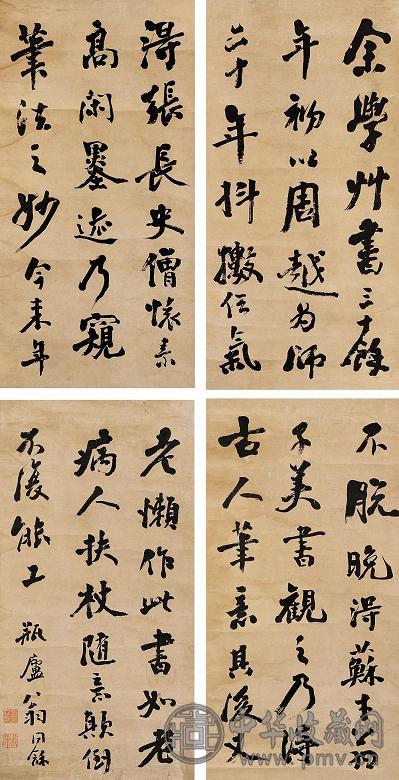 余學艸書三十餘
年初以周越為師
二十年抖擻俗氣
不脫晚得蘇才翁
子美書觀之乃得
古人筆意其後又
得張長史僧懷素
高閑墨迹乃窺
筆法之妙今來年
老懶作此書如老
病人扶杖隨意顛倒
不復能工
瓶廬翁同龢
中华收藏网